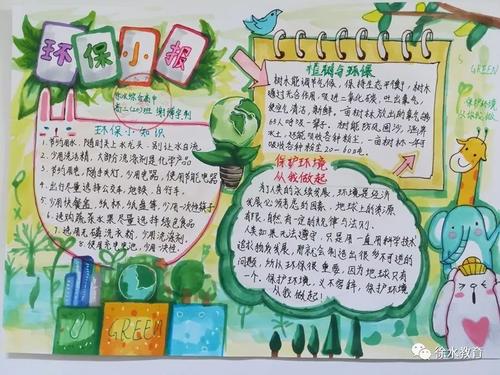 环保小报
徐水综合高中
高二(20)班
环保小知识
1. 节约用水，随时关上水龙头，别让水白流
2. 少用洗洁精，大部分洗涤剂是化学产品
3. 节约用电，随手关灯，少用电器，使用节能电器
4. 出行尽量选择公交车，地铁，自行车。
5. 少用快餐盒，纸杯，纸盘等，少用一次性筷子
6. 选购蔬菜水果尽量选择绿色食品
7. 选用无磷洗衣粉，少用洗涤剂。
8. 使用充电电池，少用一次性。
GREEN
植树与环保
树木能调节气候，保持生态平衡，树木
通过光合作用，吸进二氧化碳，吐出氧气，
使空气清洁，新鲜，一亩树林放出的氧气够
65人呼吸一辈子。树能防风固沙，涵养
水土，还能吸收各种粉尘，一亩树林一年可
吸收各种粉尘20—60吨。
保护环境
从我做起
为人类的永续发展，环境是经济
发展必须考虑的因素，地球上的资源
有限，自然有一定的规律与法则。
人类如果无法遵守，只是用一直用科学技术
追求物质发展，那就会制造出很多不可逆的
问题，所以环保很重要，因为地球只有
一个。保护环境，义不容辞，保护环境
从我做起！
GREEN
保护环境
从我做起
徐水教育